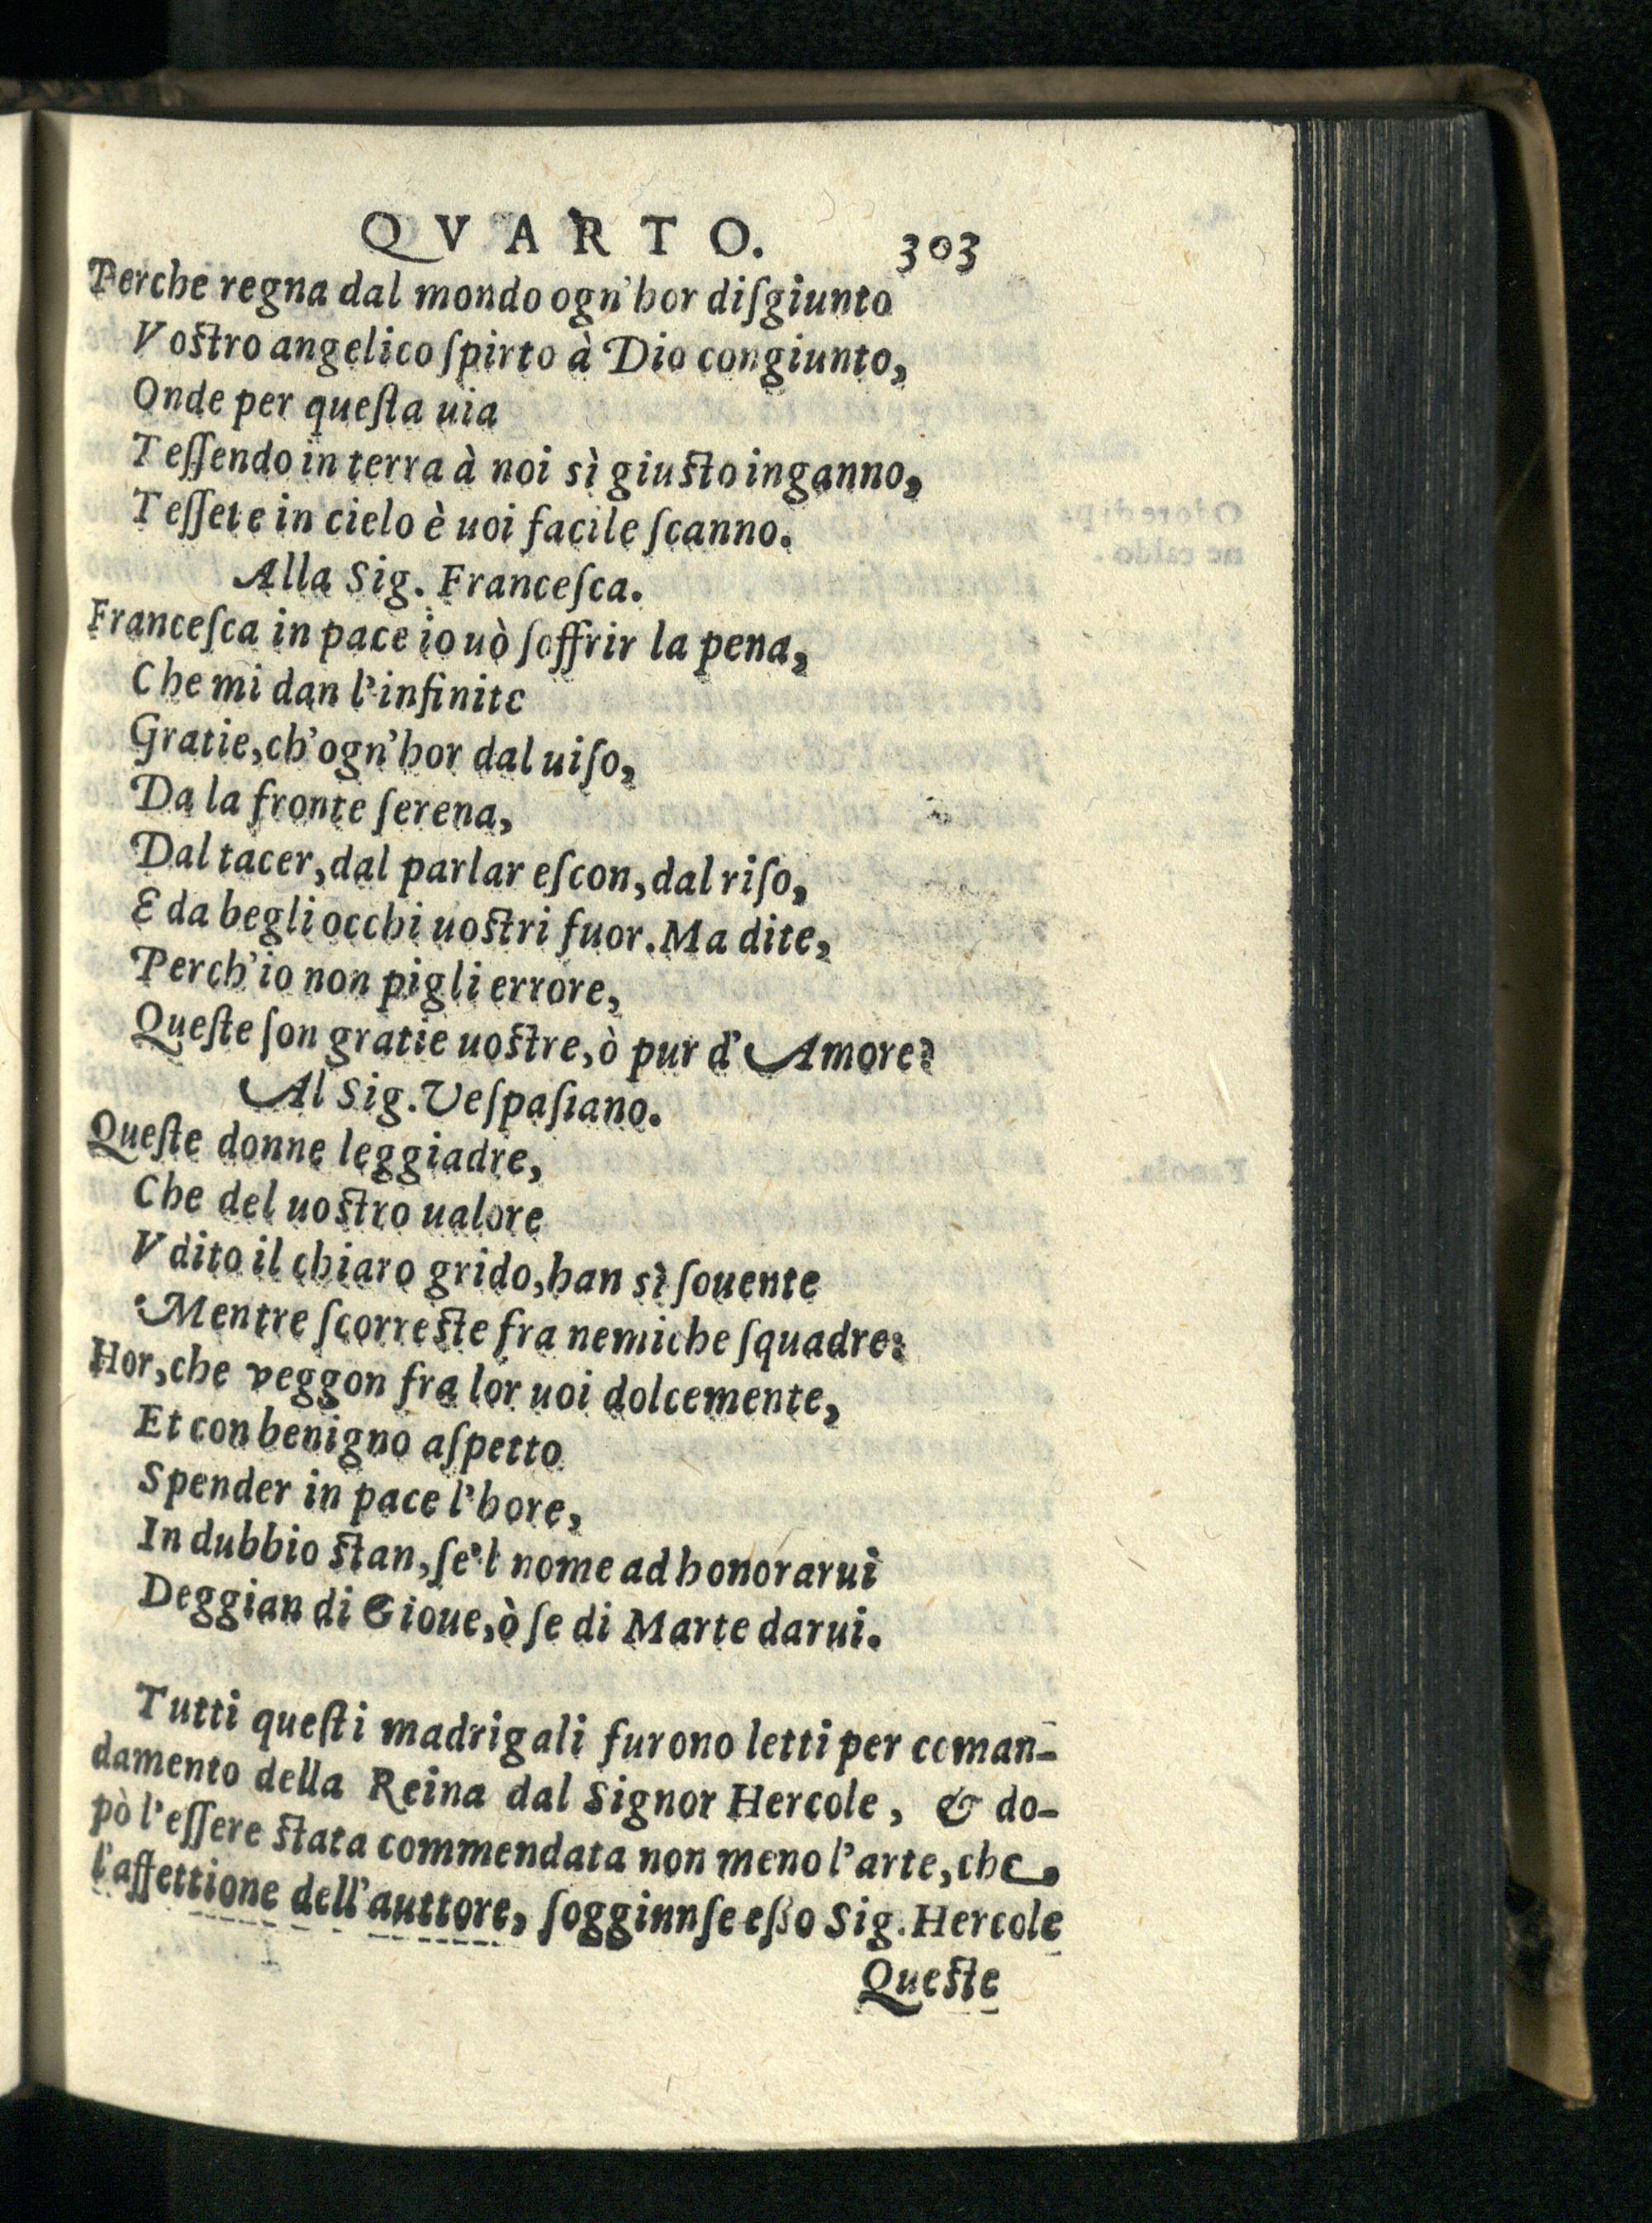 QVARTO. 303
Perche regna dal mondo ogn'hor diſgiunto
Voſtro angelico ſpirto à Dio congiunto,
Onde per queſta uia
Teſſendo in terra à noi sì giuſto inganno,
Teſſete in cielo è uoi facile ſcanno.
Alla Sig. Franceſca.
Franceſca in pace io uò ſoffrir la pena,
Che mi dan l'infinite
Gratie, ch'ogn'hor dal uiſo,
Da la fronte ſerena,
Dal tacer, dal parlar eſcon, dal riſo,
E da begli occhi uoſtri fuor. Ma dite,
Perch'io non pigli errore,
Queſte ſon gratie uoſtre, ò pur d'Amore?
Al Sig. Veſpaſiano.
Queſte donne leggiadre,
Che del uoſtro ualore
Vdito il chiaro grido, han sì ſouente
Mentre ſcorreſte fra nemiche ſquadre:
Hor, che veggon fra lor uoi dolcemente,
Et con benigno aſpetto
Spender in pace l'hore,
In dubbio ſtan, ſe'l nome ad honorarui
Deggian di Gioue, ò ſe di Marte darui.
Tutti queſti madrigali furono letti per coman-
damento della Reina dal Signor Hercole, & do-
pò l'eſſere ſtata commendata non meno l'arte, che
l'affettione dell'auttore, ſogginnſe eſso Sig. Hercole
Queſte